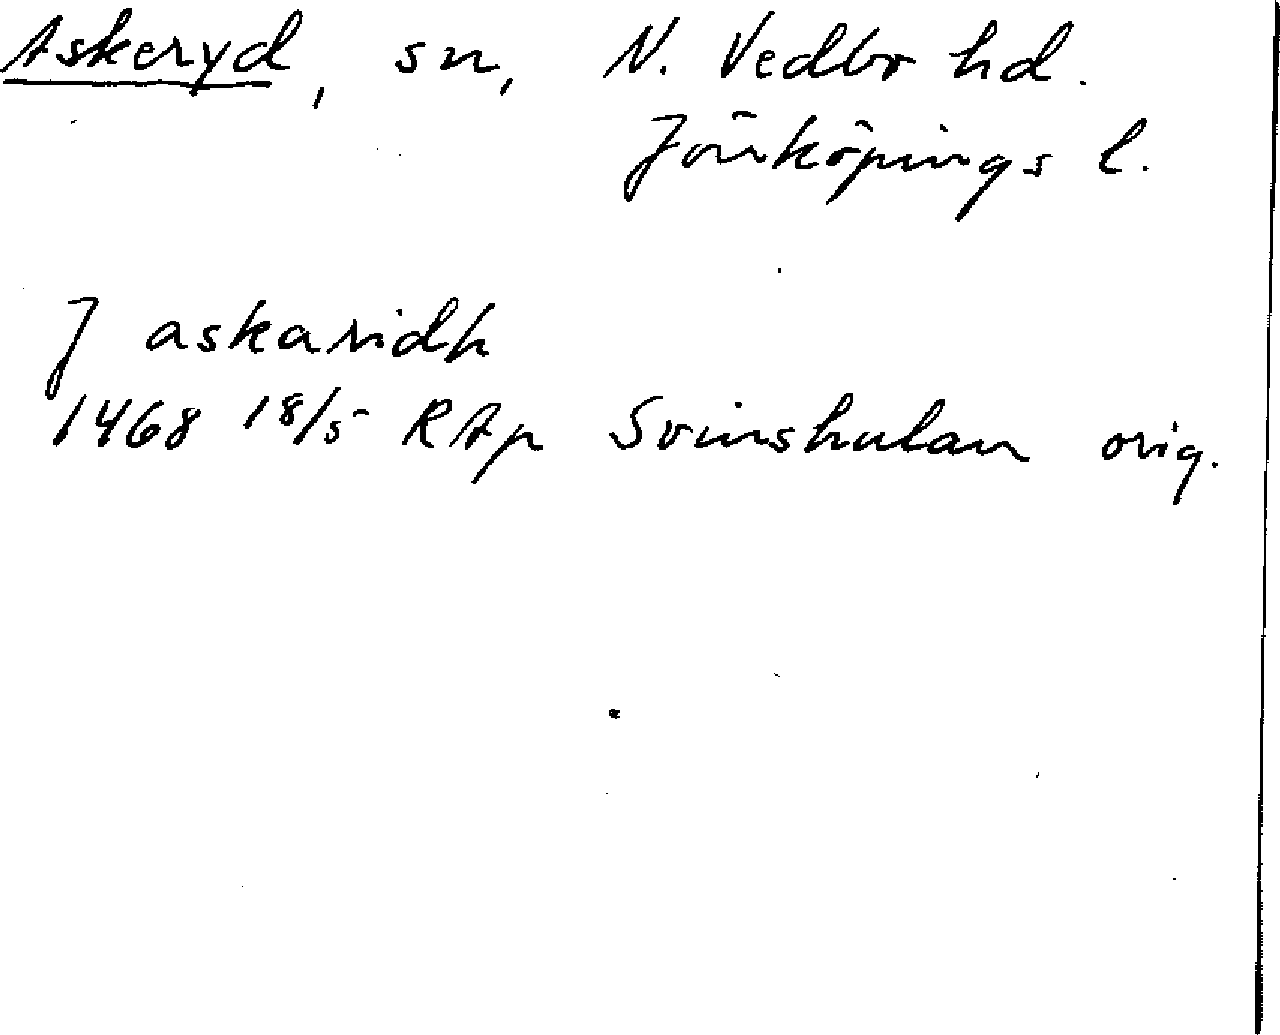 Askeryd, sn, N. Vedbo hd.
Jönköpings l.
J askaridh
1468 18/5 RAp Svinshulan orig.